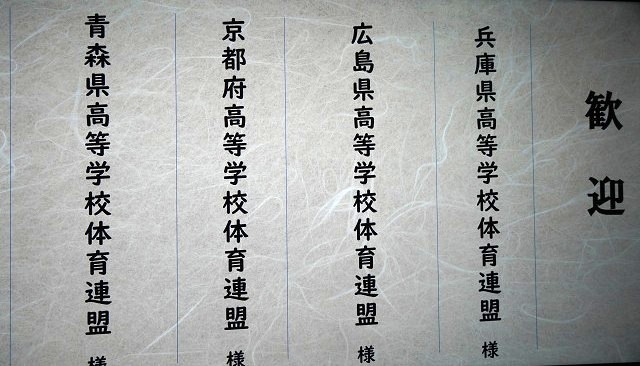 歓迎
兵庫県高等学校体育連盟 様
広島県高等学校体育連盟 様
京都府高等学校体育連盟 様
青森県高等学校体育連盟 様